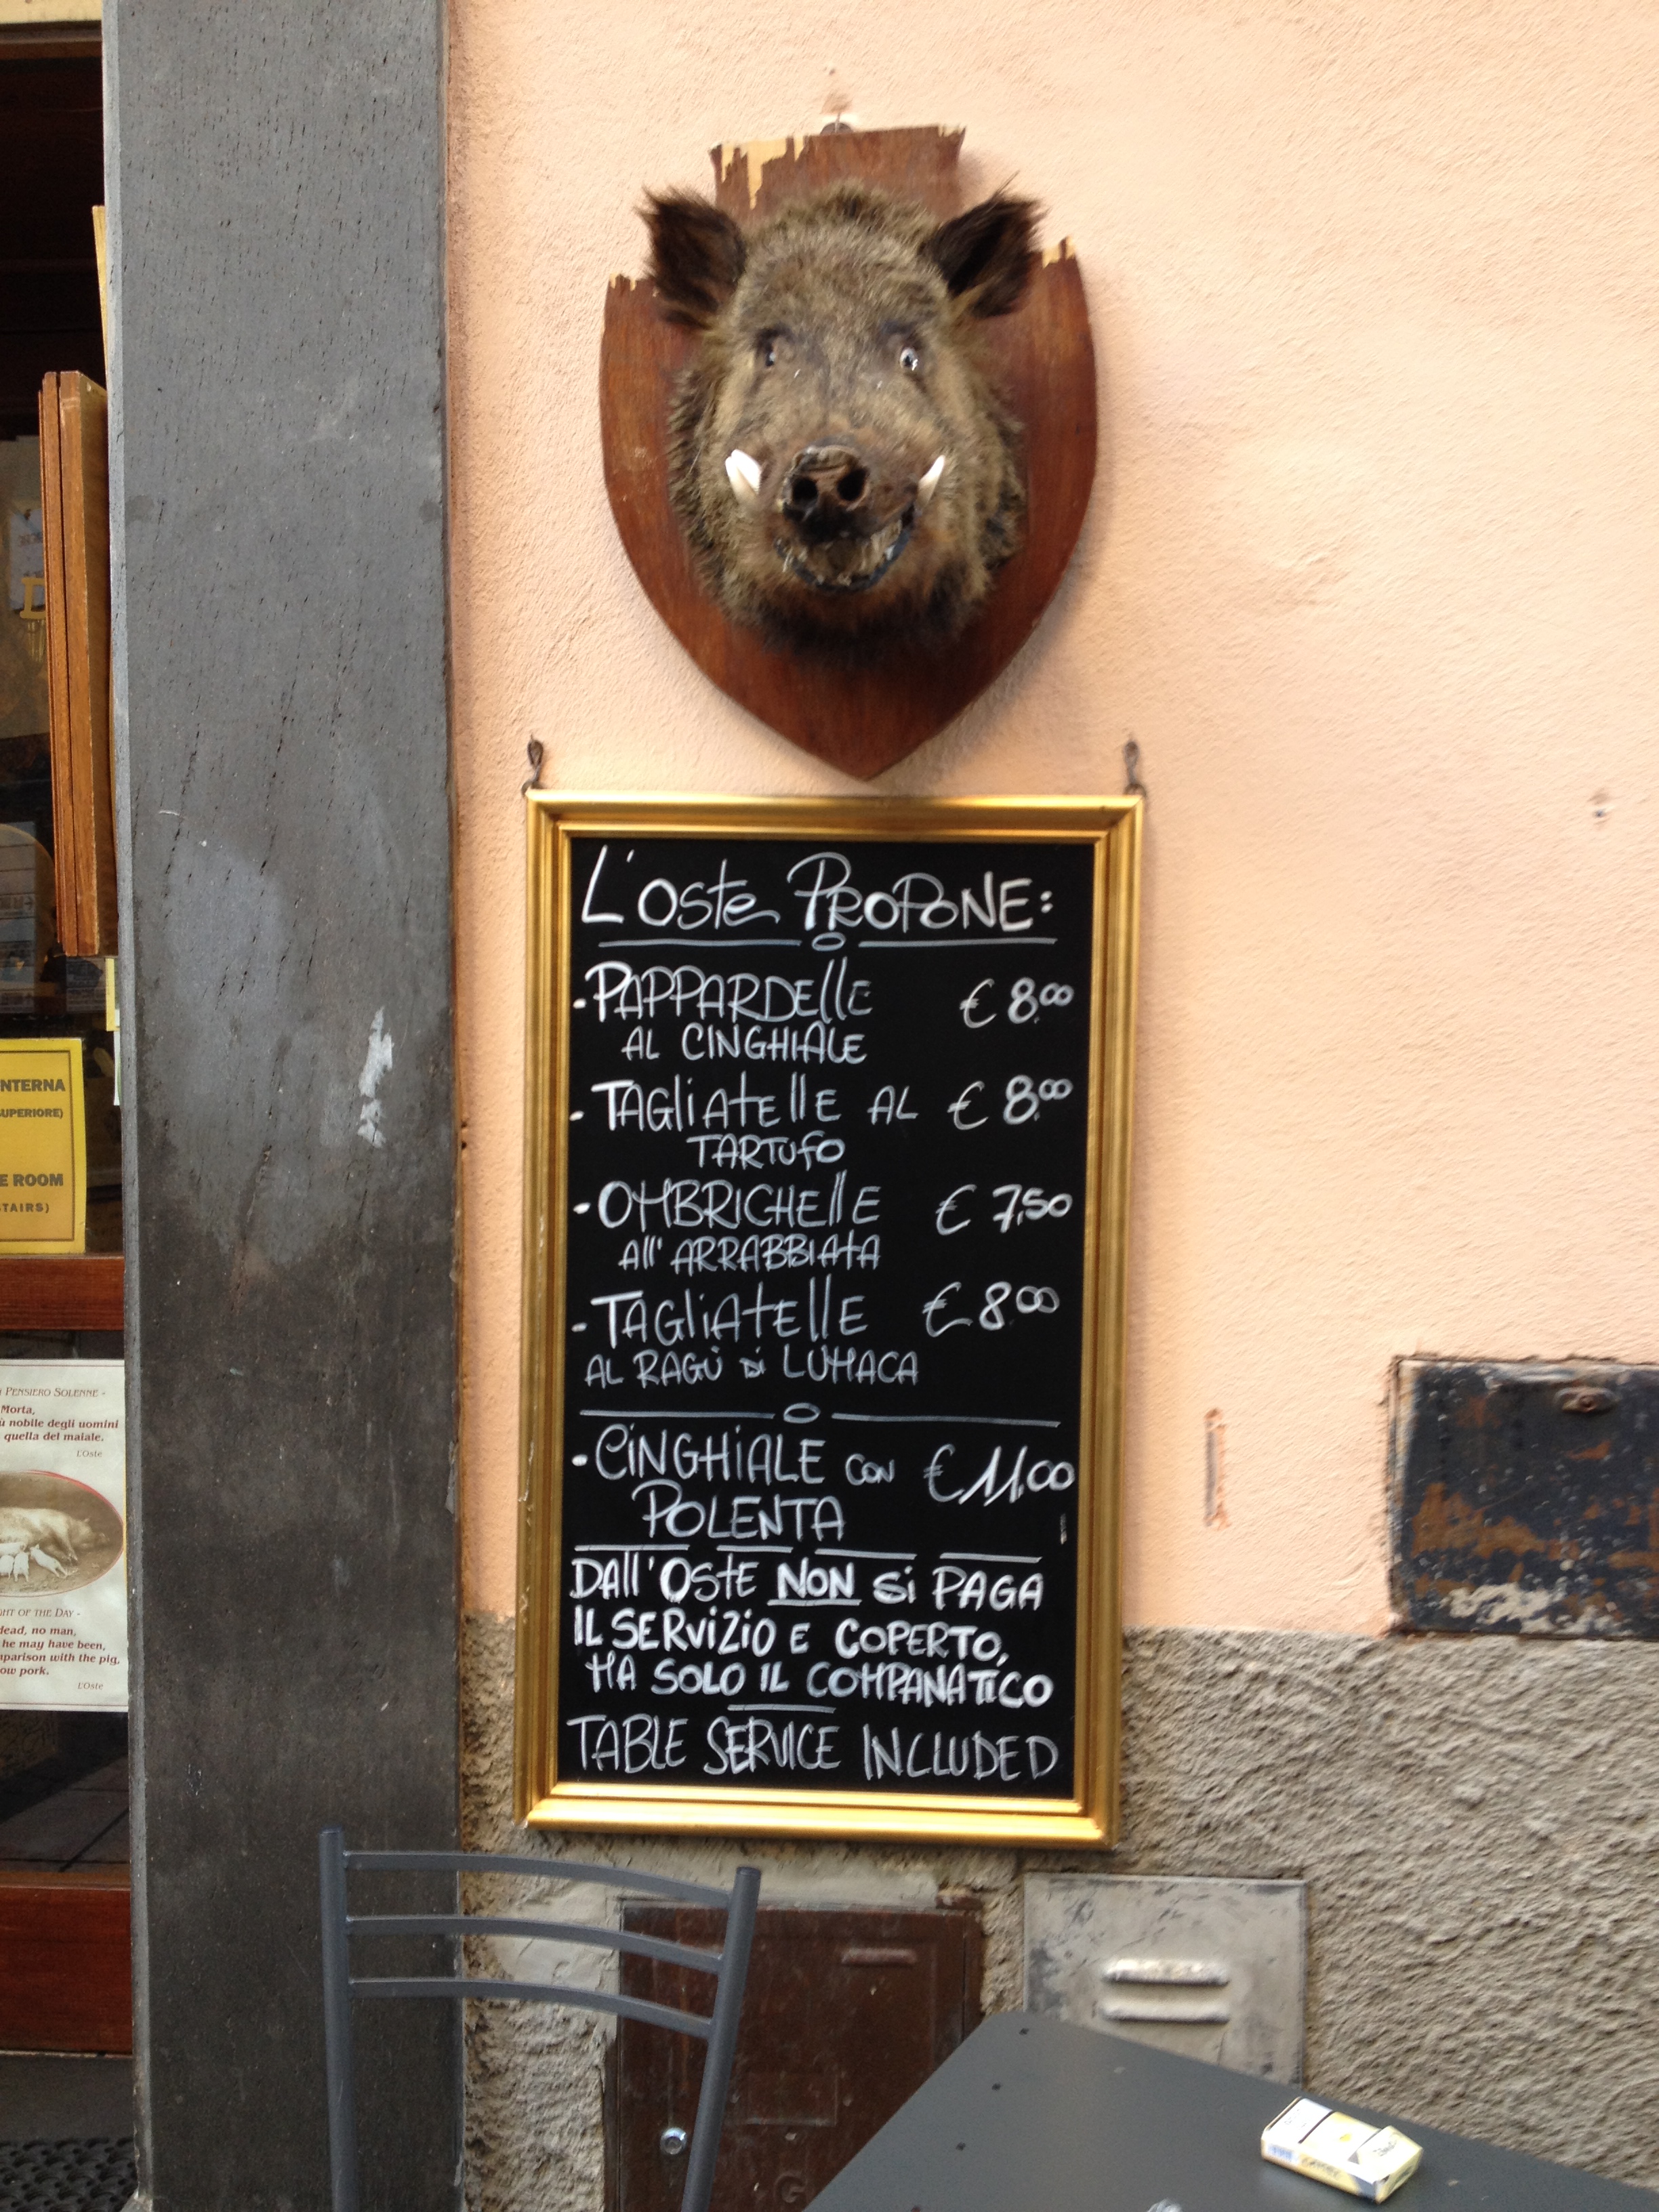 L'OSTE PROPONE:
- PAPPARDELLE € 8.00
AL CINGHIALE
- TAGLIATELLE AL € 8.00
TARTUFO
- OMBRICHELLE € 7,50
ALL'ARRABBIATA
- TAGLIATELLE € 8.00
AL RAGÙ DI LUMACA
- CINGHIALE CON € 11,00
POLENTA
DALL'OSTE NON SI PAGA
IL SERVIZIO E COPERTO,
MA SOLO IL COMPANATICO
TABLE SERVICE INCLUDED
NTERNA
SUPERIORE)
E ROOM
TAIRS)
PENSIERO SOLENNE -
Morta,
ù nobile degli uomini
quella del maiale.
L'Oste
HT OF THE DAY -
dead, no man,
he may have been,
mparison with the pig,
ow pork.
L'Oste
G